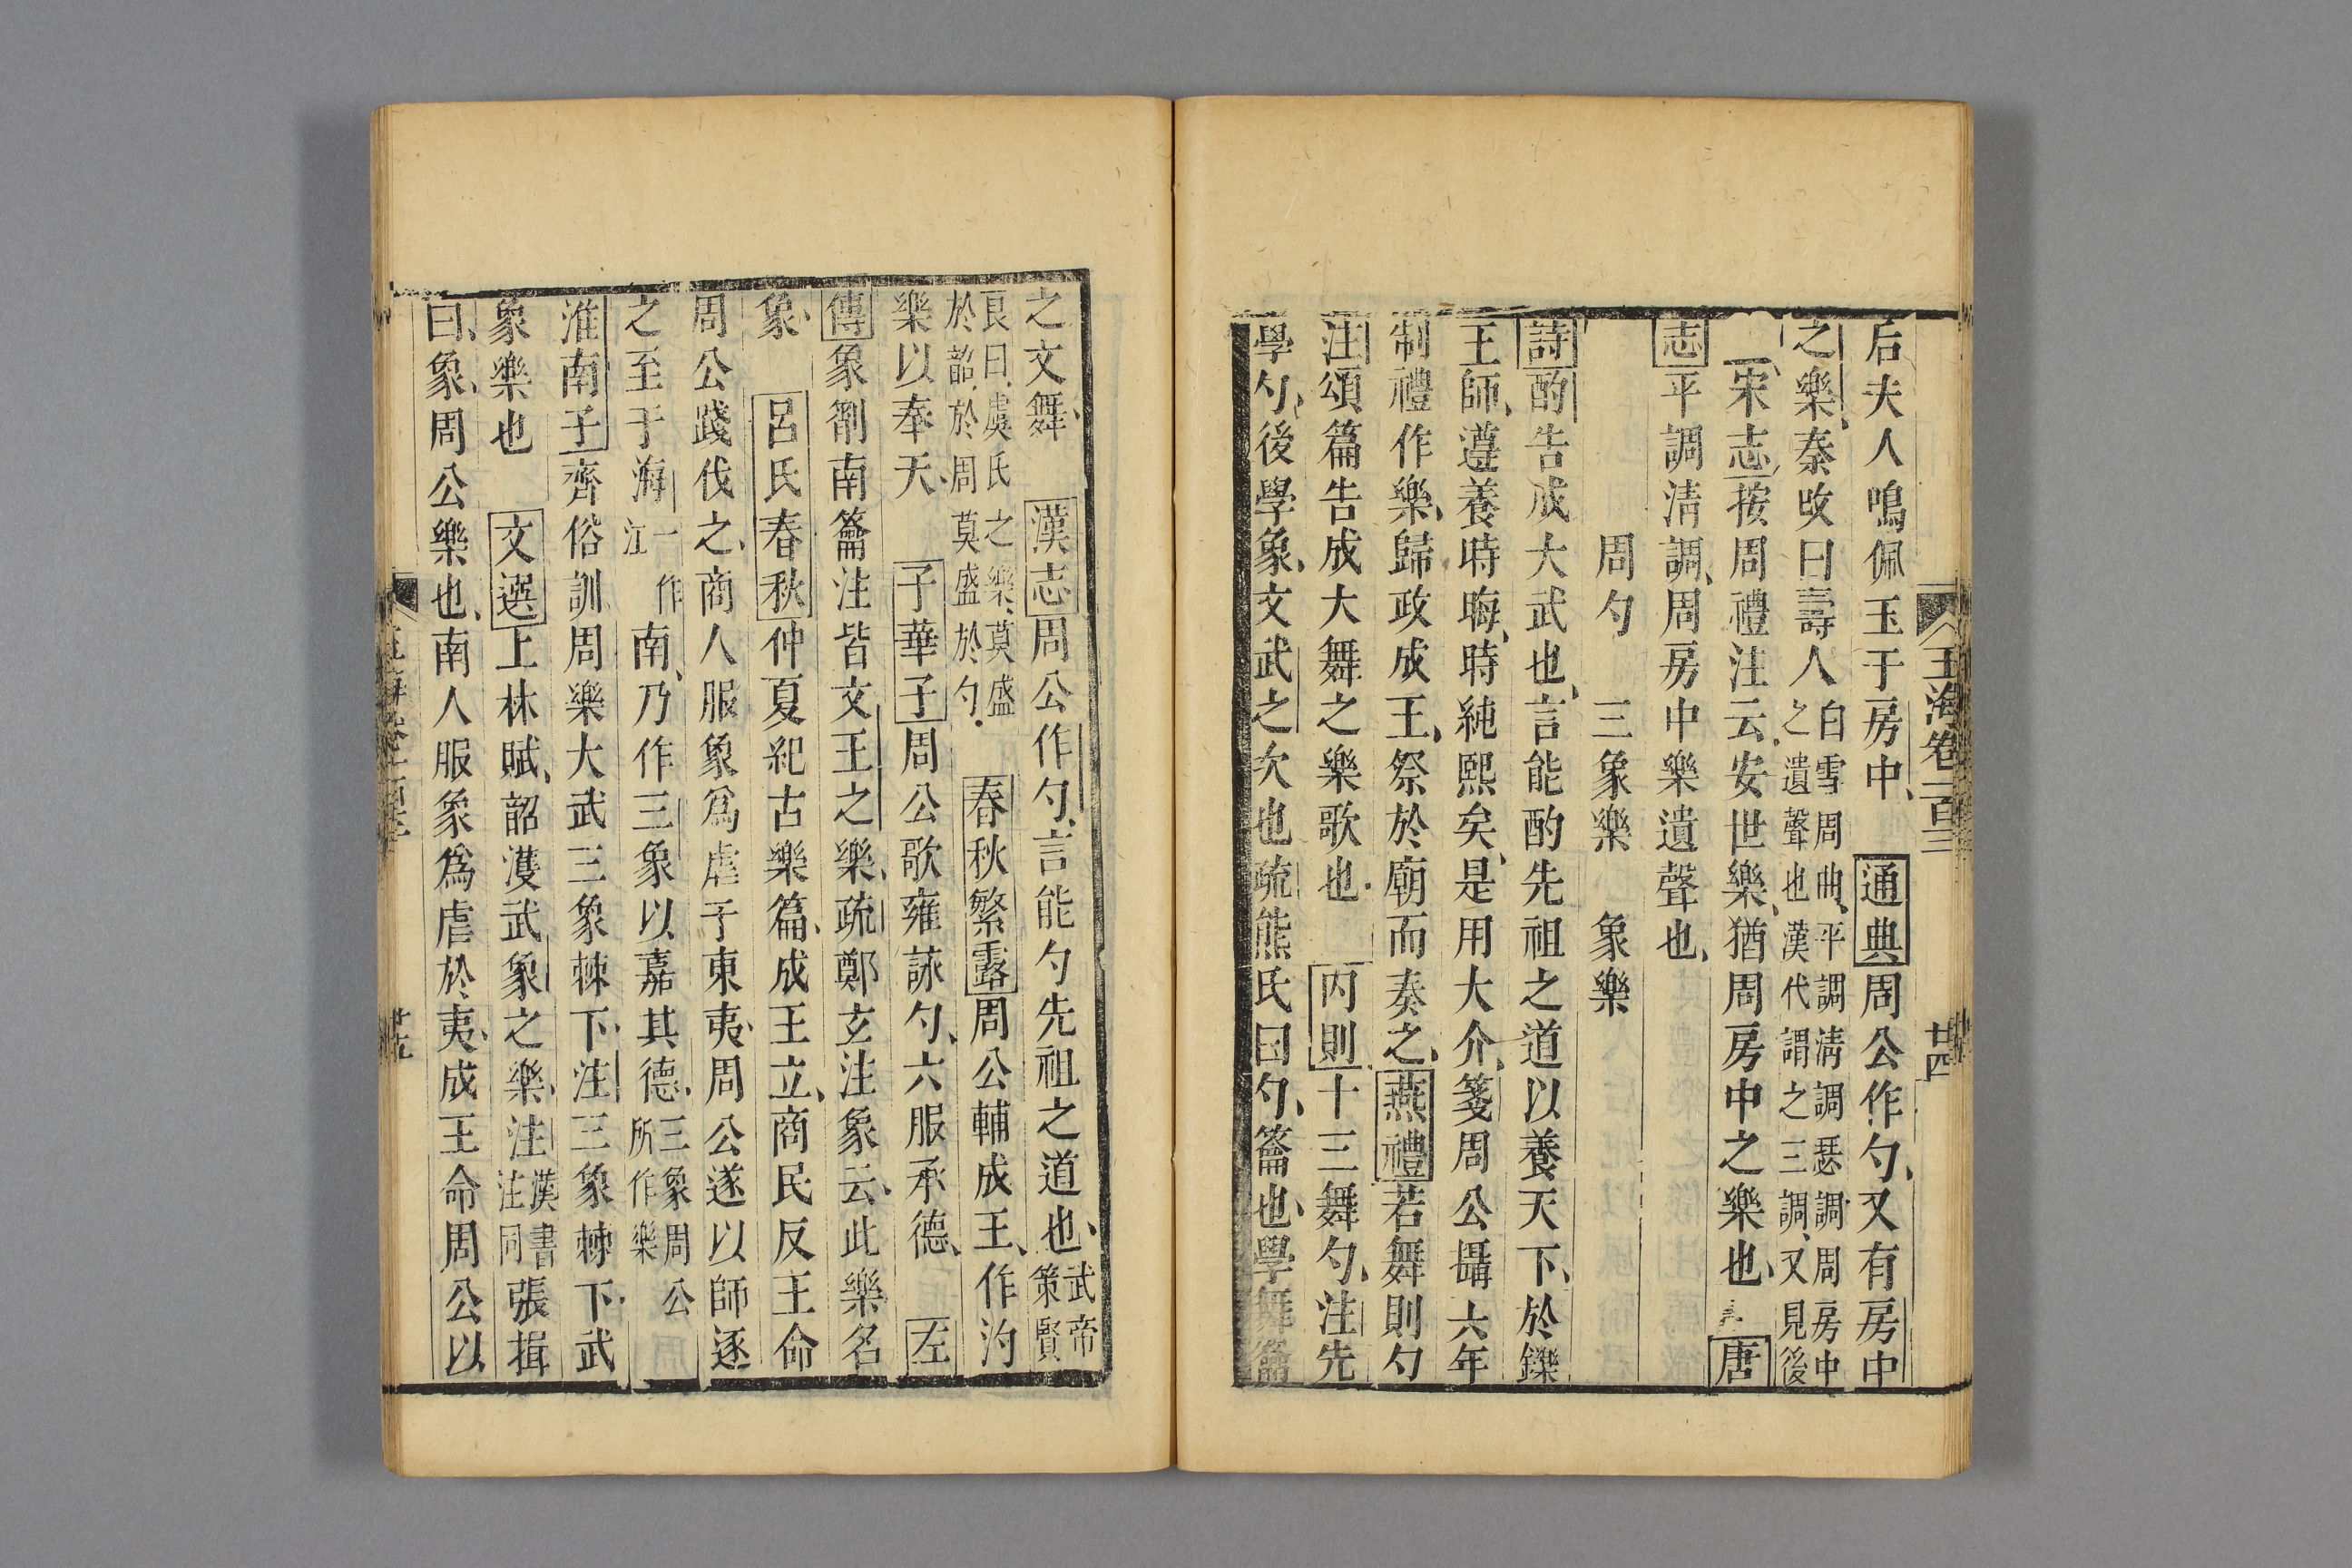 玉海卷一百三 廿四
后夫人鳴佩玉于房中、 通典周公作勺、又有房中
之樂、秦改曰壽人白雪周曲、平調清調瑟調周房中之遺聲也漢代謂之三調、又見後
宋志、按周禮注云、安世樂、猶周房中之樂也、 唐
志平調清調、周房中樂遺聲也、
周勺 三象樂 象樂
詩酌告成大武也、言能酌先祖之道以養天下、於鑠
王師、遵養時晦、時純熙矣、是用大介、箋周公攝六年
制禮作樂、歸政成王、祭於廟而奏之、燕禮若舞則勺
注頌篇告成大舞之樂歌也. 內則十三舞勺、注先
學勺、後學象、文武之次也疏熊氏曰勺、籥也、學舞籥
之文舞、 漢志周公作勺、言能勺先祖之道也、武帝策賢
良曰、虞氏之樂、莫盛於韶、於周莫盛於勺. 春秋繁露周公輔成王、作汋
樂以奉天、 子華子周公歌雍詠勺、六服承德、 左
傳象箾南籥注皆文王之樂、疏鄭玄注象云、此樂名
象、 呂氏春秋仲夏紀古樂篇、成王立、商民反王命
周公踐伐之、商人服象爲虐于東夷、周公遂以師逐
之至于海一作江南、乃作三象以嘉其德、三象周公所作樂
淮南子齊俗訓周樂大武三象棘下、注三象棘下、武
象樂也 文選上林賦、韶濩武象之樂、注漢書注同張揖
曰、象、周公樂也、南人服象爲虐於夷、成王命周公以
廿五